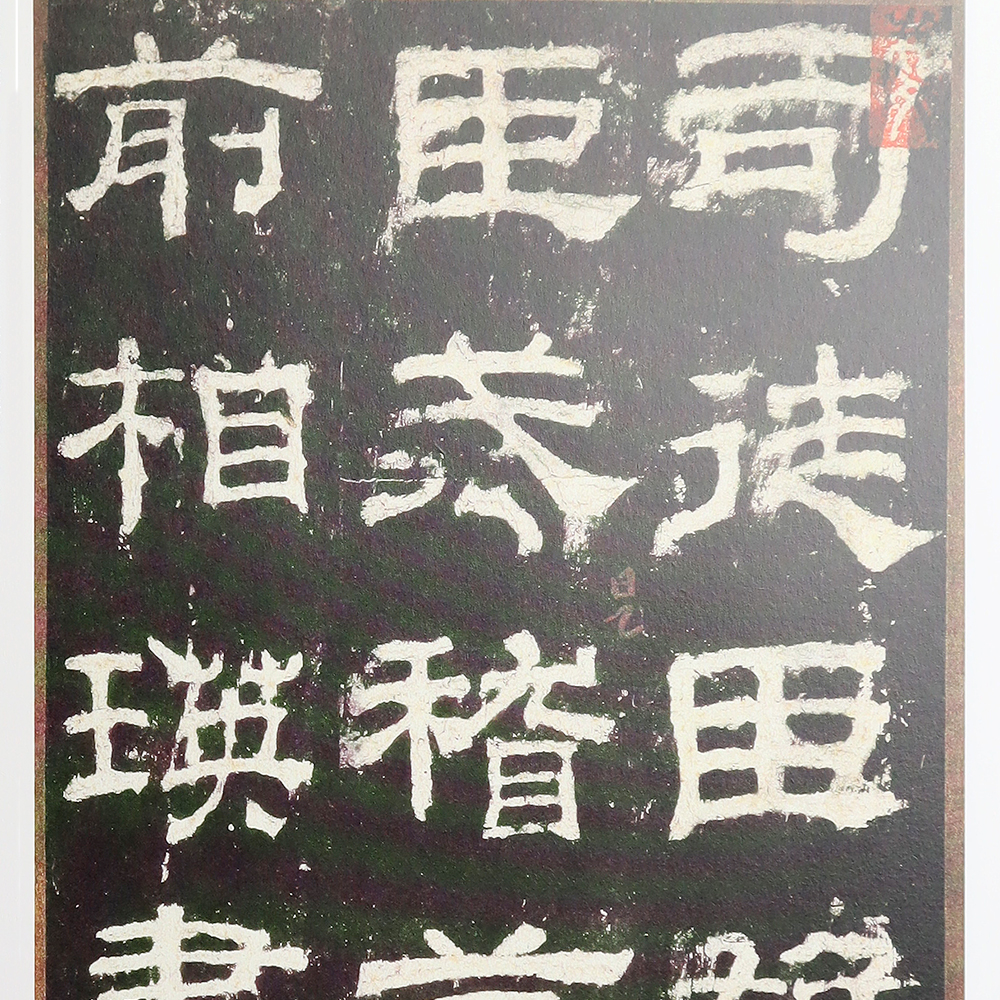 司徒臣
臣戒稽首
前相瑛書